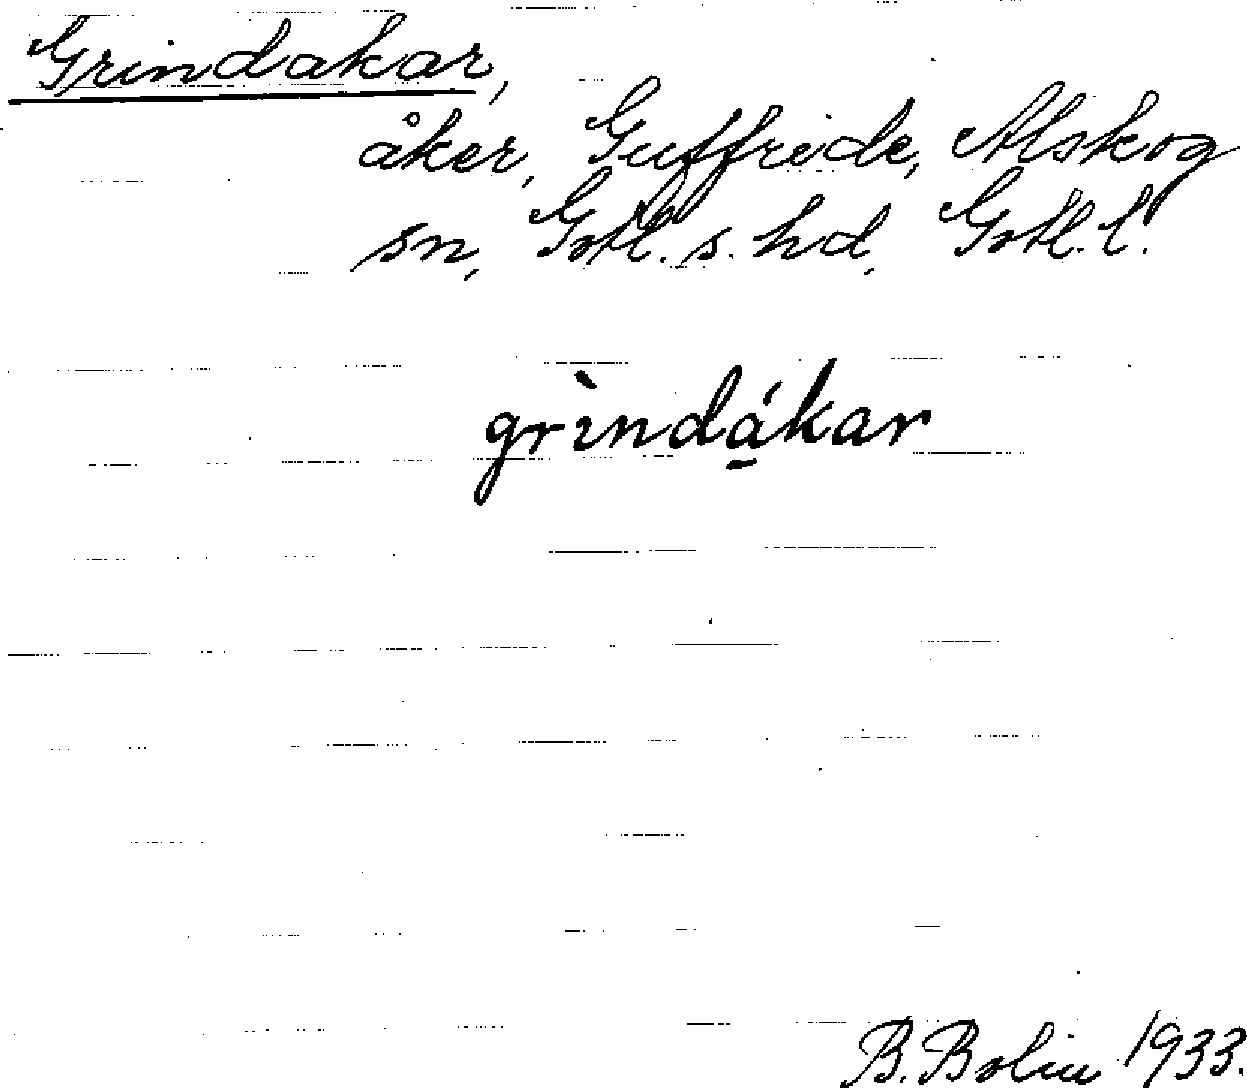 Grindakar,
åker, Guffride, Alskog
sn, Gotl. s. hd, Gotl. l.
grìndá̱kar
B. Bolin 1933.